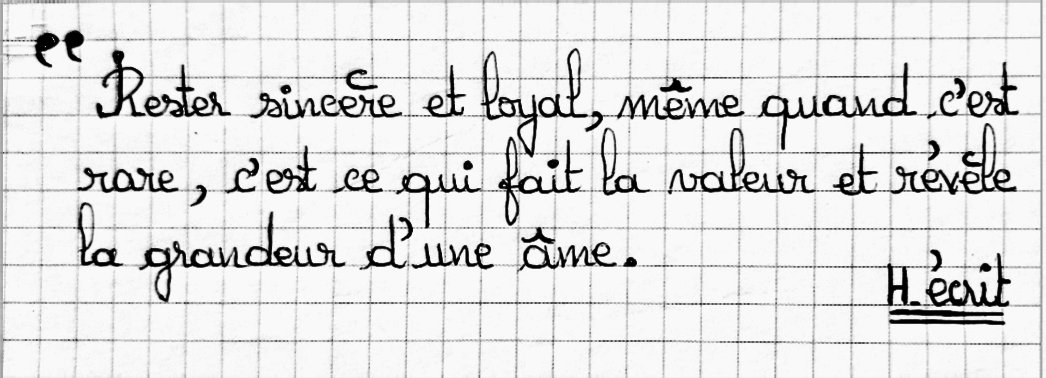 “Rester sincère et loyal, même quand c'est
rare, c'est ce qui fait la valeur et révèle
la grandeur d'une âme.
H. écrit